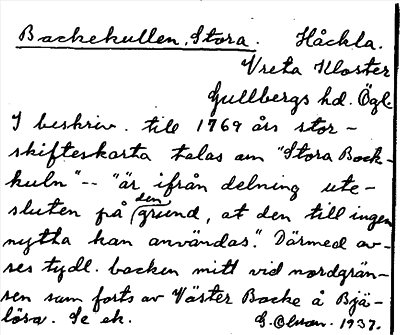 Backekullen, Stora. Håckla.
Vreta Kloster
Gullbergs hd. Ögl.
I beskriv. till 1769 års stor-
skifteskarta talas om "Stora Back-
kuln" -- "är ifrån delning ute-
sluten på den grund, at den till ingen
nytta kan användas". Därmed av-
ses tydl. backen mitt vid nordgrän-
sen som forts av Väster Backe å Bjä-
lösa. Se ek. G. Olson. 1937.